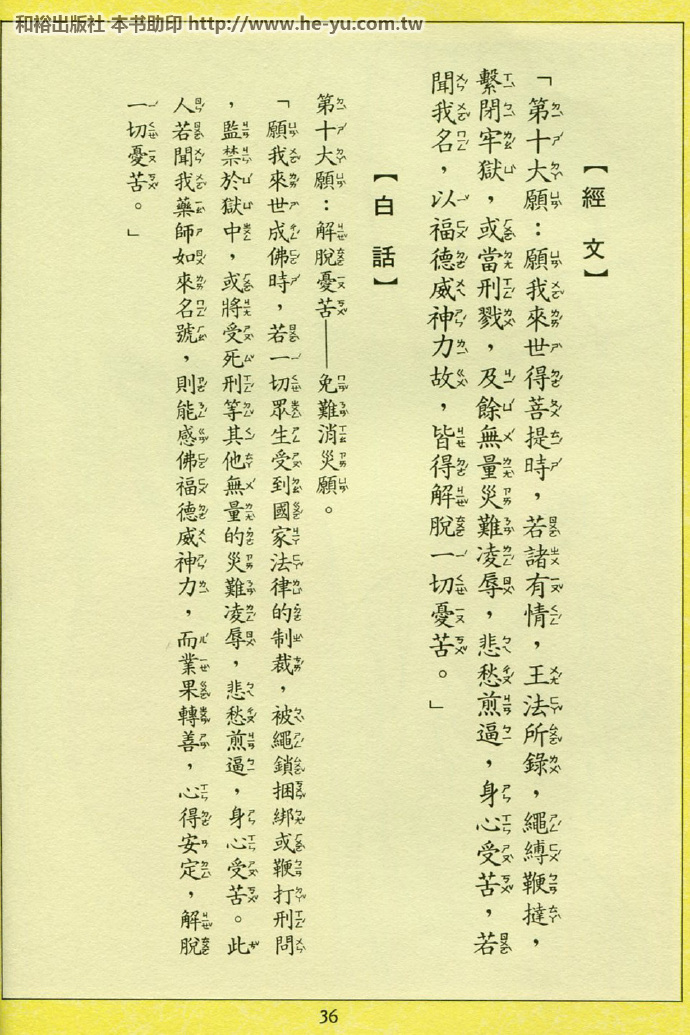 和裕出版社 本书助印 http://www.he-yu.com.tw
【經 文】
「第十大願：願我來世得菩提時，若諸有情，王法所錄，繩縛鞭撻，
繫閉牢獄，或當刑戮，及餘無量災難凌辱，悲愁煎逼，身心受苦，若
聞我名，以福德威神力故，皆得解脫一切憂苦。」
【白 話】
第十大願：解脫憂苦——免難消災願。
「願我來世成佛時，若一切眾生受到國家法律的制裁，被繩鎖捆綁或鞭打刑問
，監禁於獄中，或將受死刑等其他無量的災難凌辱，悲愁煎逼，身心受苦。此
人若聞我藥師如來名號，則能感佛福德威神力，而業果轉善，心得安定，解脫
一切憂苦。」
36